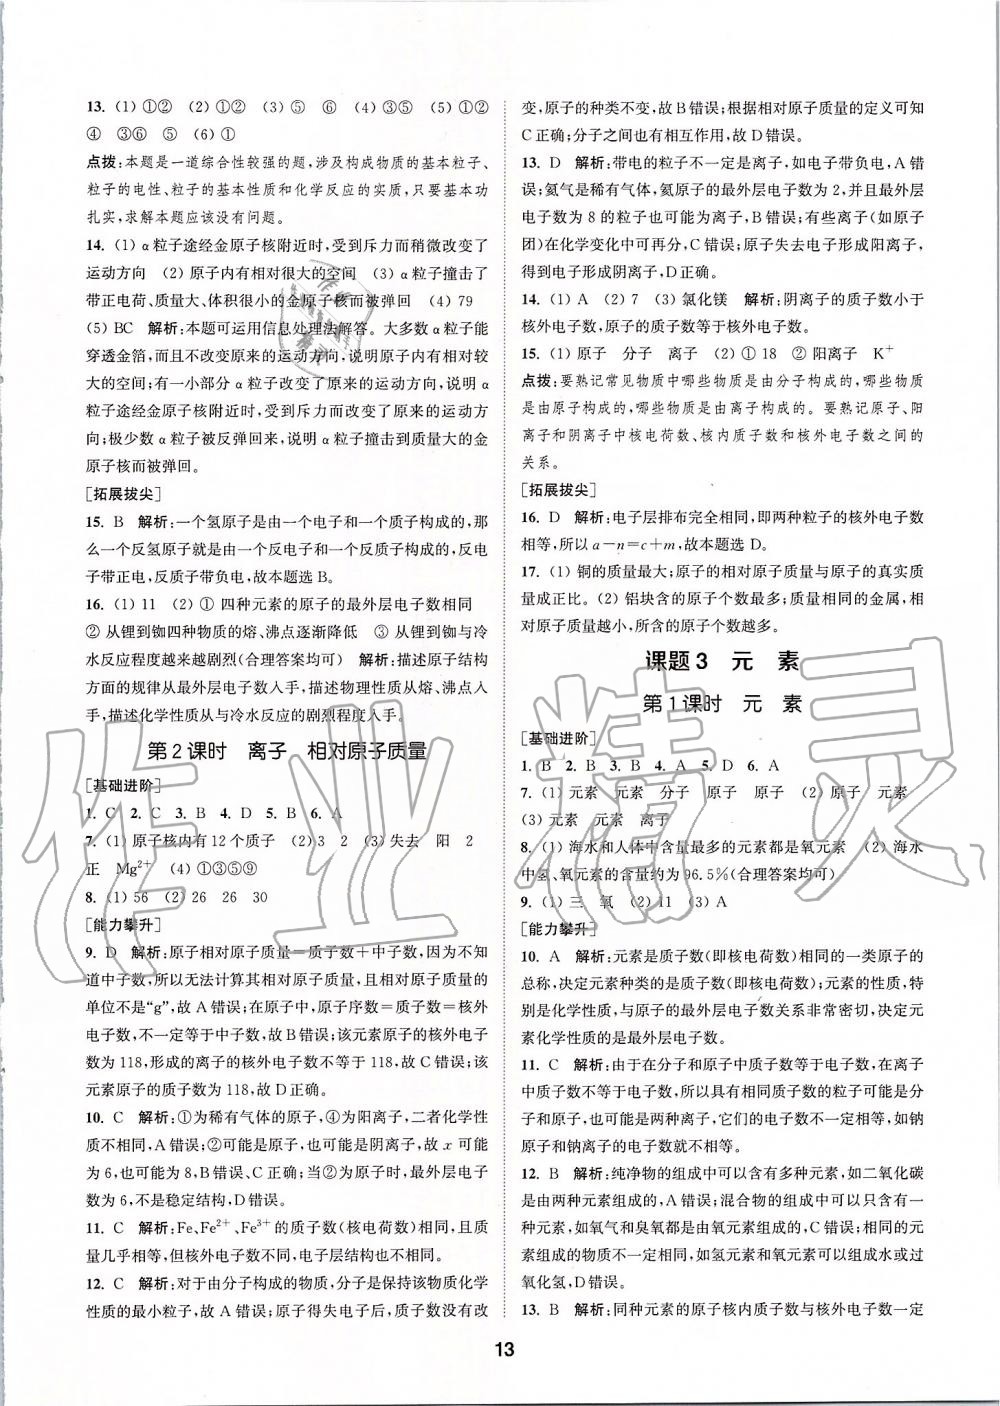 13. (1) ①② (2) ①② (3) ⑤ ⑥ (4) ③⑤ (5) ①②
④ ③⑥ ⑤ (6) ①
点拨:本题是一道综合性较强的题,涉及构成物质的基本粒子、
粒子的电性、粒子的基本性质和化学反应的实质,只要基本功
扎实,求解本题应该没有问题。
14. (1) α粒子途经金原子核附近时,受到斥力而稍微改变了
运动方向 (2) 原子内有相对很大的空间 (3) α粒子撞击了
带正电荷、质量大、体积很小的金原子核而被弹回 (4) 79
(5) BC 解析:本题可运用信息处理法解答。大多数α粒子能
穿透金箔,而且不改变原来的运动方向,说明原子内有相对较
大的空间;有一小部分α粒子改变了原来的运动方向,说明α
粒子途经金原子核附近时,受到斥力而改变了原来的运动方
向;极少数α粒子被反弹回来,说明α粒子撞击到质量大的金
原子核而被弹回。
[拓展拔尖]
15. B 解析:一个氢原子是由一个电子和一个质子构成的,那
么一个反氢原子就是由一个反电子和一个反质子构成的,反电
子带正电,反质子带负电,故本题选B。
16. (1) 11 (2) ① 四种元素的原子的最外层电子数相同
② 从锂到铷四种物质的熔、沸点逐渐降低 ③ 从锂到铷与冷
水反应程度越来越剧烈(合理答案均可) 解析:描述原子结构
方面的规律从最外层电子数入手,描述物理性质从熔、沸点入
手,描述化学性质从与冷水反应的剧烈程度入手。
第2课时 离子 相对原子质量
[基础进阶]
1. C 2. C 3. B 4. D 5. B 6. A
7. (1) 原子核内有12个质子 (2) 3 2 (3) 失去 阳 2
正 Mg²⁺ (4) ①③⑤⑨
8. (1) 56 (2) 26 26 30
[能力攀升]
9. D 解析:原子相对原子质量=质子数+中子数,因为不知
道中子数,所以无法计算其相对原子质量,且相对原子质量的
单位不是“g”,故A错误;在原子中,原子序数=质子数=核外
电子数,不一定等于中子数,故B错误;该元素原子的核外电子
数为118,形成的离子的核外电子数不等于118,故C错误;该
元素原子的质子数为118,故D正确。
10. C 解析:①为稀有气体的原子,④为阳离子,二者化学性
质不相同,A错误;②可能是原子,也可能是阴离子,故x可能
为6,也可能为8,B错误、C正确;当②为原子时,最外层电子
数为6,不是稳定结构,D错误。
11. C 解析:Fe、Fe²⁺、Fe³⁺的质子数(核电荷数)相同,且质
量几乎相等,但核外电子数不同、电子层结构也不相同。
12. C 解析:对于由分子构成的物质,分子是保持该物质化学
性质的最小粒子,故A错误;原子得失电子后,质子数没有改
变,原子的种类不变,故B错误;根据相对原子质量的定义可知
C正确;分子之间也有相互作用,故D错误。
13. D 解析:带电的粒子不一定是离子,如电子带负电,A错
误;氦气是稀有气体,氦原子的最外层电子数为2,并且最外层
电子数为8的粒子也可能为离子,B错误;有些离子(如原子
团)在化学变化中可再分,C错误;原子失去电子形成阳离子,
得到电子形成阴离子,D正确。
14. (1) A (2) 7 (3) 氯化镁 解析:阴离子的质子数小于
核外电子数,原子的质子数等于核外电子数。
15. (1) 原子 分子 离子 (2) ① 18 ② 阳离子 K⁺
点拨:要熟记常见物质中哪些物质是由分子构成的,哪些物质
是由原子构成的,哪些物质是由离子构成的。要熟记原子、阳
离子和阴离子中核电荷数、核内质子数和核外电子数之间的
关系。
[拓展拔尖]
16. D 解析:电子层排布完全相同,即两种粒子的核外电子数
相等,所以a-n=c+m,故本题选D。
17. (1) 铜的质量最大;原子的相对原子质量与原子的真实质
量成正比。(2) 铝块含的原子个数最多;质量相同的金属,相
对原子质量越小,所含的原子个数越多。
课题3 元 素
第1课时 元 素
[基础进阶]
1. B 2. B 3. B 4. A 5. D 6. A
7. (1) 元素 元素 分子 原子 原子 (2) 原子 元素
(3) 元素 元素 离子
8. (1) 海水和人体中含量最多的元素都是氧元素 (2) 海水
中氢、氧元素的含量约为96.5%(合理答案均可)
9. (1) 三 氧 (2) 11 (3) A
[能力攀升]
10. A 解析:元素是质子数(即核电荷数)相同的一类原子的
总称,决定元素种类的是质子数(即核电荷数);元素的性质,特
别是化学性质,与原子的最外层电子数关系非常密切,决定元
素化学性质的是最外层电子数。
11. C 解析:由于在分子和原子中质子数等于电子数,在离子
中质子数不等于电子数,所以具有相同质子数的粒子可能是分
子和原子,也可能是两种离子,它们的电子数不一定相等,如钠
原子和钠离子的电子数就不相等。
12. B 解析:纯净物的组成中可以含有多种元素,如二氧化碳
是由两种元素组成的,A错误;混合物的组成中可以只含有一
种元素,如氧气和臭氧都是由氧元素组成的,C错误;相同的元
素组成的物质不一定相同,如氢元素和氧元素可以组成水或过
氧化氢,D错误。
13. B 解析:同种元素的原子核内质子数与核外电子数一定
13
作业精灵